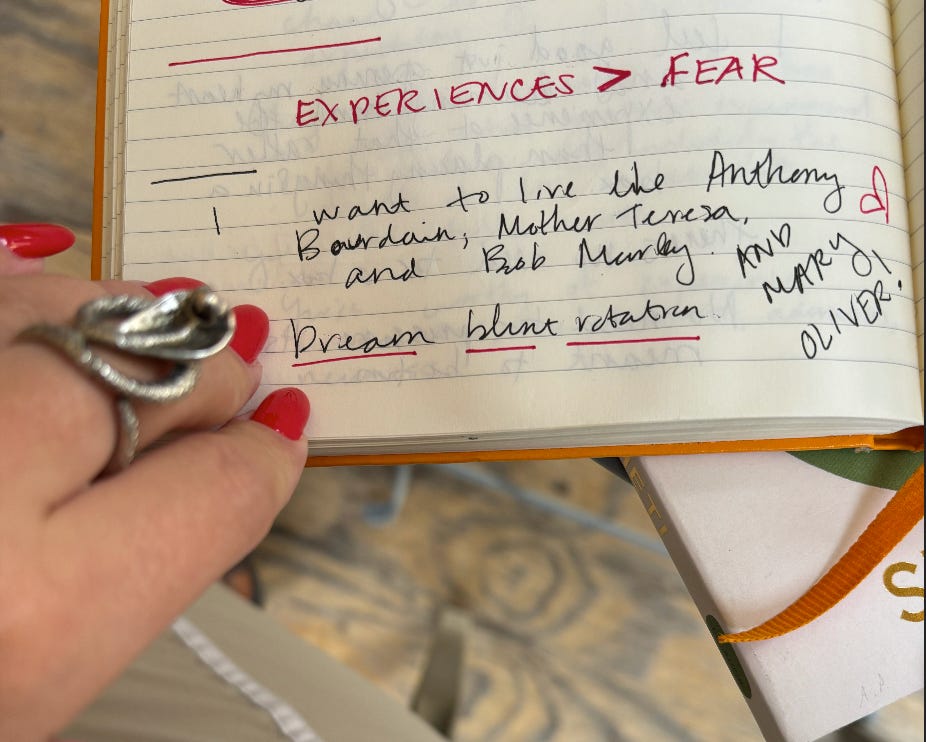 EXPERIENCES > FEAR
I want to live like Anthony
Bourdain, Mother Teresa,
and Bob Marley. AND
MARY
OLIVER!
Dream blunt rotation.